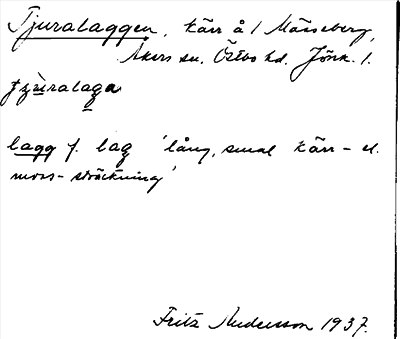 Tjuralaggen, kärr å/ Mässeberg,
Åkers sn. Östbo hd. Jönk. l.
lagg f. lag 'lång, smal kärr- el.
moss-sträckning'
Fritz Andersson 1937.